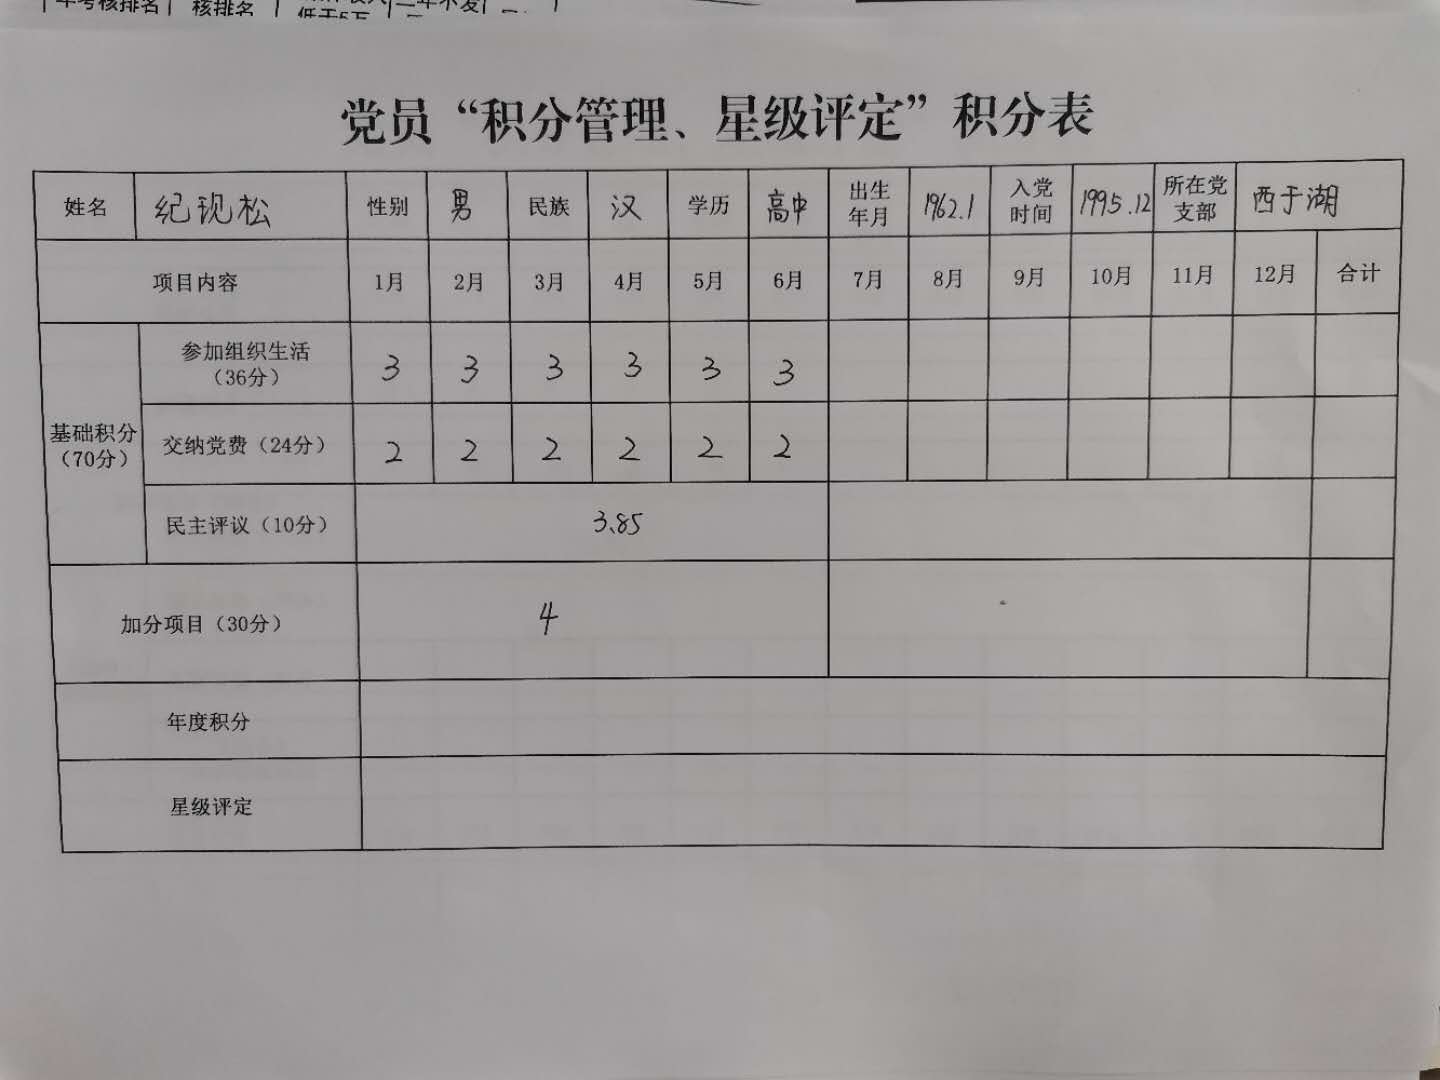 年考核排名 核排名
党员“积分管理、星级评定”积分表
姓名 纪现松 性别 男 民族 汉 学历 高中 出生年月 1962.1 入党时间 1995.12 所在党支部 西于湖
项目内容 1月 2月 3月 4月 5月 6月 7月 8月 9月 10月 11月 12月 合计
基础积分（70分）
参加组织生活（36分） 3 3 3 3 3 3
交纳党费（24分） 2 2 2 2 2 2
民主评议（10分） 3.85
加分项目（30分） 4
年度积分
星级评定